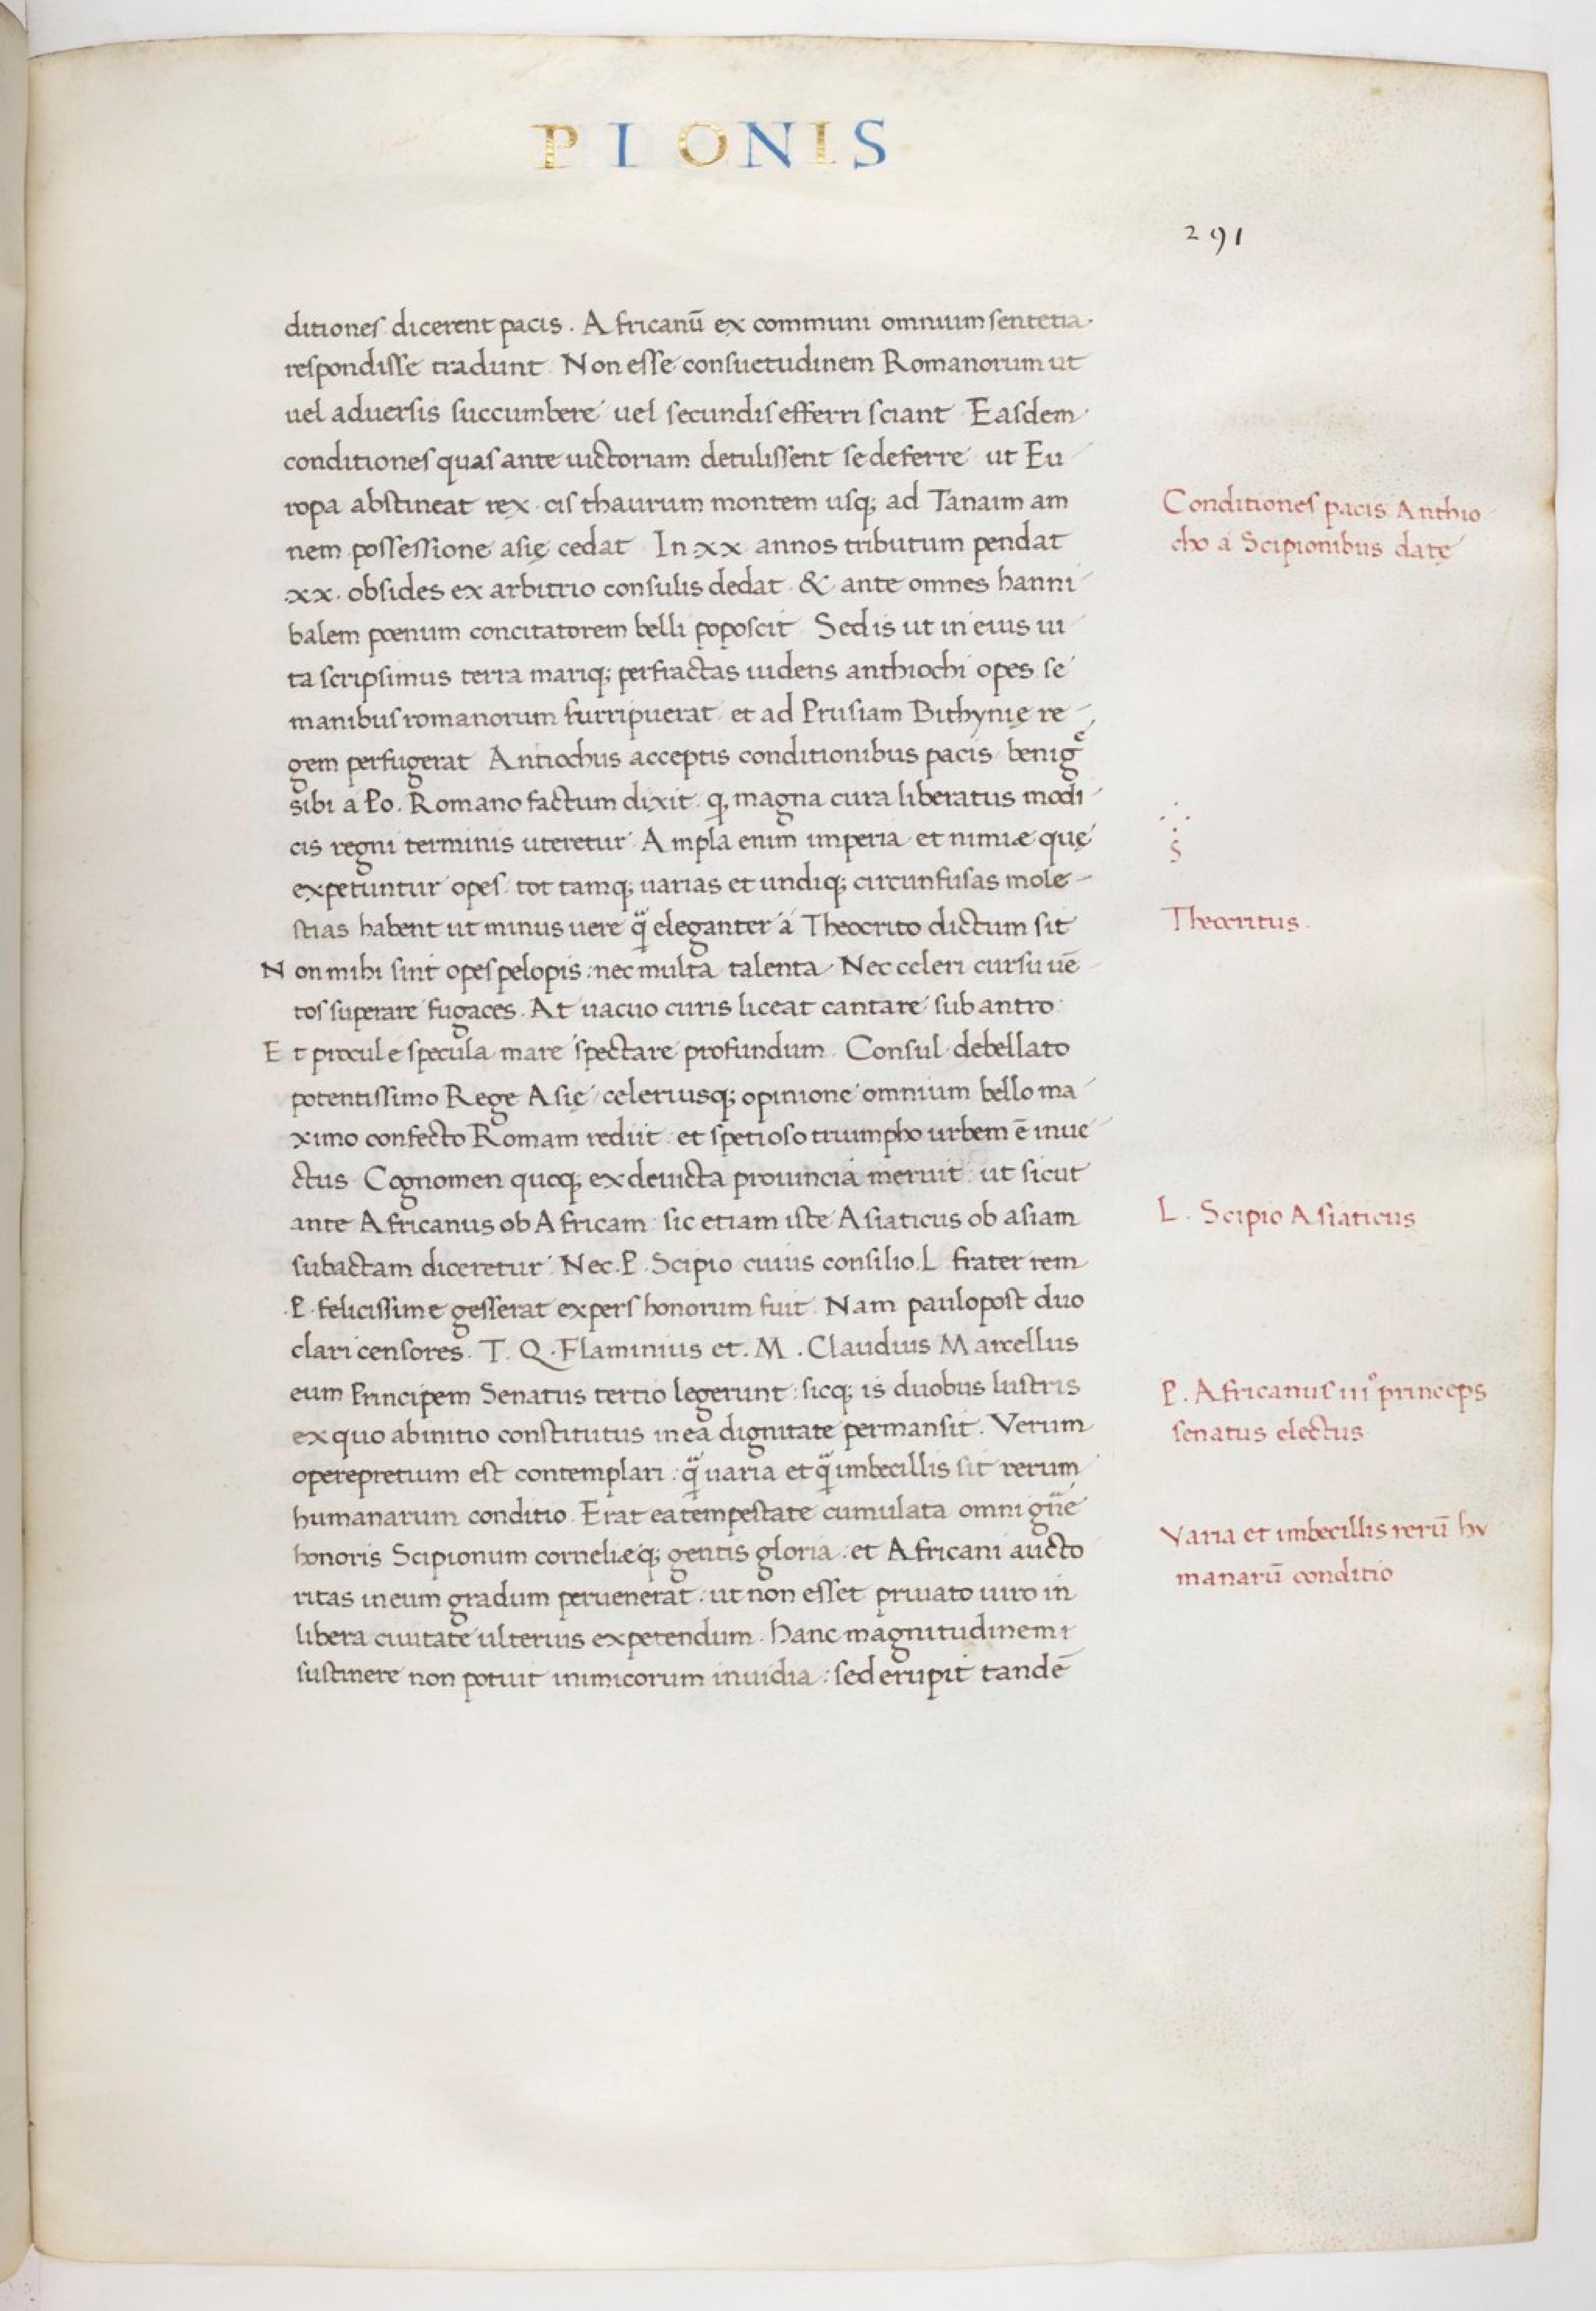 PIONIS
291
ditiones dicerent pacis. Africanū ex communi omnium sentetia
respondisse tradunt Non esse consuetudinem Romanorum ut
uel aduersis succumbere uel secundis efferri sciant Easdem
conditiones quas ante uictoriam detulissent se deferre ut Eu
ropa abstineat rex. cis thaurum montem usq; ad Tanaim am
nem possessione asię cedat In .xx. annos tributum pendat
.xx. obsides ex arbitrio consulis dedat. & ante omnes hanni
balem poenum concitatorem belli poposcit Sed is ut in eius ui
ta scripsimus terra mariq; perfractas uidens anthiochi opes se
manibus romanorum surripuerat et ad Prusiam Bithynię re
gem perfugerat Antiochus acceptis conditionibus pacis benig
sibi a Po. Romano factum dixit. q, magna cura liberatus modi
cis regni terminis uteretur. Ampla enim imperia et nimiæ quę
expetuntur opes. tot tamq; uarias et undiq; circunfusas mole
stias habent ut minus uere q̃ eleganter á Theocrito dictum sit
Non mihi sint opes pelopis: nec multa talenta. Nec celeri cursu uē
tos superare fugaces. At uacuo curis liceat cantare sub antro:
Et procul e specula mare spectare profundum. Consul debellato
potentissimo Rege Asię celeriusq; opinione omnium bello ma
ximo confecto Romam rediit: et spetioso triumpho urbem ē inue
ctus Cognomen quoq, ex deuicta prouincia meruit: ut sicut
ante Africanus ob Africam: sic etiam iste Asiaticus ob asiam
subactam diceretur. Nec .P. Scipio cuius consilio .L. frater rem
.P. felicissime gesserat expers honorum fuit. Nam paulopost duo
clari censores. T. Q. Flaminius et .M. Claudius Marcellus
eum Principem Senatus tertio legerunt: sicq; is duobus lustris
ex quo ab initio constitutus in ea dignitate permansit. Verum
operepretium est contemplari: q̃ uaria et q̃ imbecillis sit rerum
humanarum conditio. Erat ea tempestate cumulata omni gñe
honoris Scipionum corneliæq; gentis gloria: et Africani aucto
ritas in eum gradum peruenerat: ut non esset priuato uiro in
libera ciuitate ulterius expetendum. hanc magnitudinem
sustinere non potuit inimicorum inuidia: sed erupit tandē
Conditiones pacis Anthio
cho a Scipionibus datę
S
Theocritus.
L. Scipio Asiaticus
P. Africanus iii° princeps
senatus electus
Varia et imbecillis rerū hu
manarū conditio